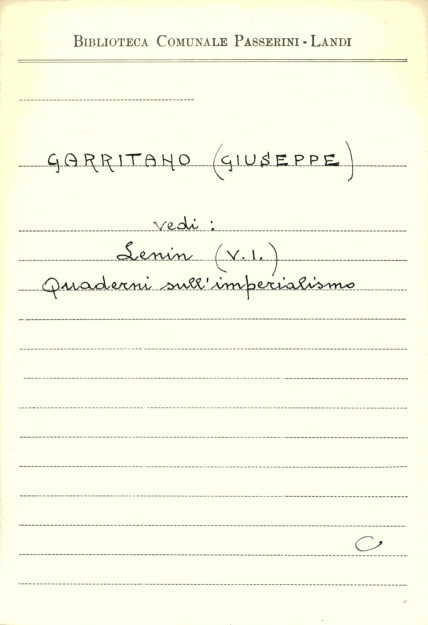 BIBLIOTECA COMUNALE PASSERINI - LANDI
GARRITANO (GIUSEPPE)
vedi :
Lenin (V. I.)
Quaderni sull'imperialismo
C